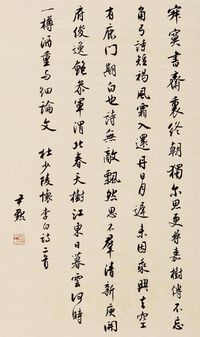 寂寞書齋裏終朝獨尔思更尋嘉樹傳不忘
角弓詩短褐風霜入還丹日月遲未因乘興去空
有鹿門期白也詩無敵飄然思不羣清新庾開
府俊逸鮑參軍渭北春天樹江東日暮雲何時
一樽酒重與細論文 杜少陵懷李白詩二首
尹默